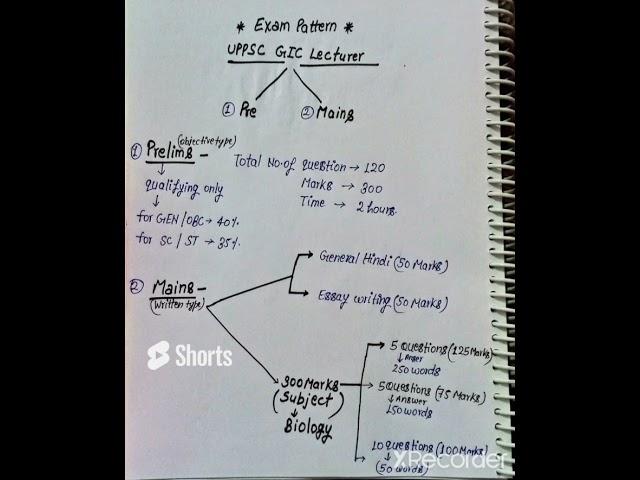 * Exam Pattern *
UPPSC GIC Lecturer
① Pre
② Mains
① Prelims - (objective type)
Total No. of question → 120
Marks → 300
Time → 2 hours.
↓
qualifying only
↓
for GEN/OBC → 40%.
for SC/ST → 35%.
② Mains -
(Written type)
General Hindi (50 Marks)
Essay writing (50 Marks)
300 Marks
(Subject)
↓
Biology
5 Questions (125 Marks)
↓ Anser
250 words
5 Questions (75 Marks)
↓ Answer
150 words
10 questions (100 Marks)
↓
(50 words)
Shorts
XRecorder